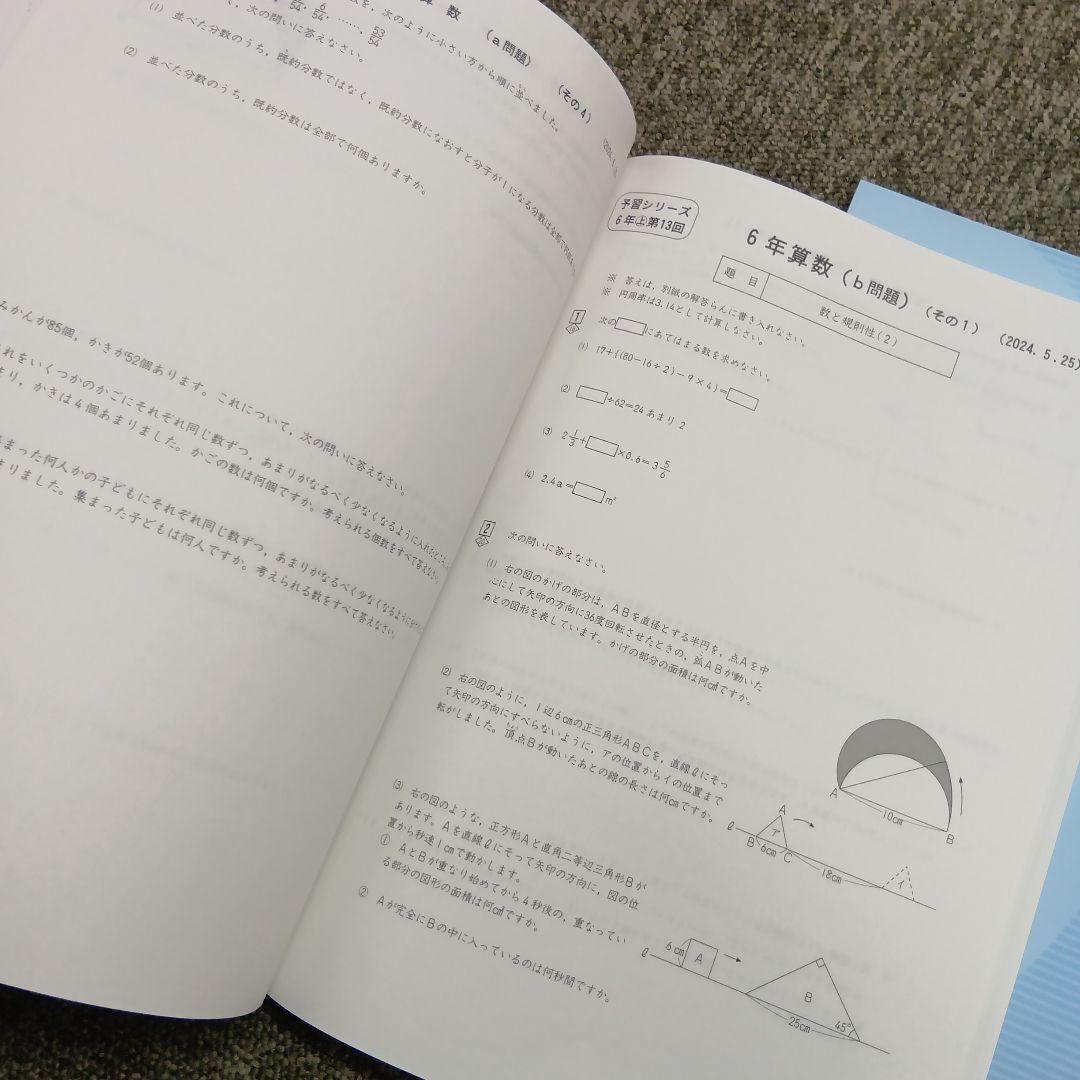 算 数 (a問題) (その4)
を、次のように小さい方から順に並べました。
54, 6/54, ……, 53/54
て、次の問いに答えなさい。
(1) 並べた分数のうち，既約分数ではなく，既約分数になおすと分子が1になる分数は全部で何個
(2) 並べた分数のうち，既約分数は全部で何個ありますか。
みかんが85個，かきが52個あります。これについて，次の問いに答えなさい。
れをいくつかのかごにそれぞれ同じ数ずつ，あまりがなるべく少なくなるように入れたところ
まり，かきは4個あまりました。かごの数は何個ですか。考えられる個数をすべて答えなさい。
まった何人かの子どもにそれぞれ同じ数ずつ，あまりがなるべく少なくなるように
まりました。集まった子どもは何人ですか。考えられる数をすべて答えなさい。
予習シリーズ
6年㊤第13回
6年算数（b問題）（その1）（2024.5.25）
題 目 数と規則性(2)
※ 答えは，別紙の解答らんに書き入れなさい。
※ 円周率は3.14として計算しなさい。
1 次の□にあてはまる数を求めなさい。
(1) 17+{(80−16÷2)−9×4}=□
(2) □÷62=24 あまり 2
(3) 2 1/3+□×0.6=3 5/6
(4) 2.4a=□m²
2 次の問いに答えなさい。
(1) 右の図のかげの部分は，ABを直径とする半円を，点Aを中
心にして矢印の方向に36度回転させたときの，弧ABが動いた
あとの図形を表しています。かげの部分の面積は何cm²ですか。
A
10cm
B
(2) 右の図のように，1辺6cmの正三角形ABCを，直線ℓにそっ
て矢印の方向にすべらないように，アの位置からイの位置まで
転がしました。頂点Bが動いたあとの線の長さは何cmですか。
A
ℓ
ア
B 6cm C
18cm
イ
(3) 右の図のような，正方形Aと直角二等辺三角形Bが
あります。Aを直線ℓにそって矢印の方向に，図の位
置から秒速1cmで動かします。
① AとBが重なり始めてから4秒後の，重なってい
る部分の図形の面積は何cm²ですか。
② Aが完全にBの中に入っているのは何秒間ですか。
ℓ
6cm
A
B
45°
25cm